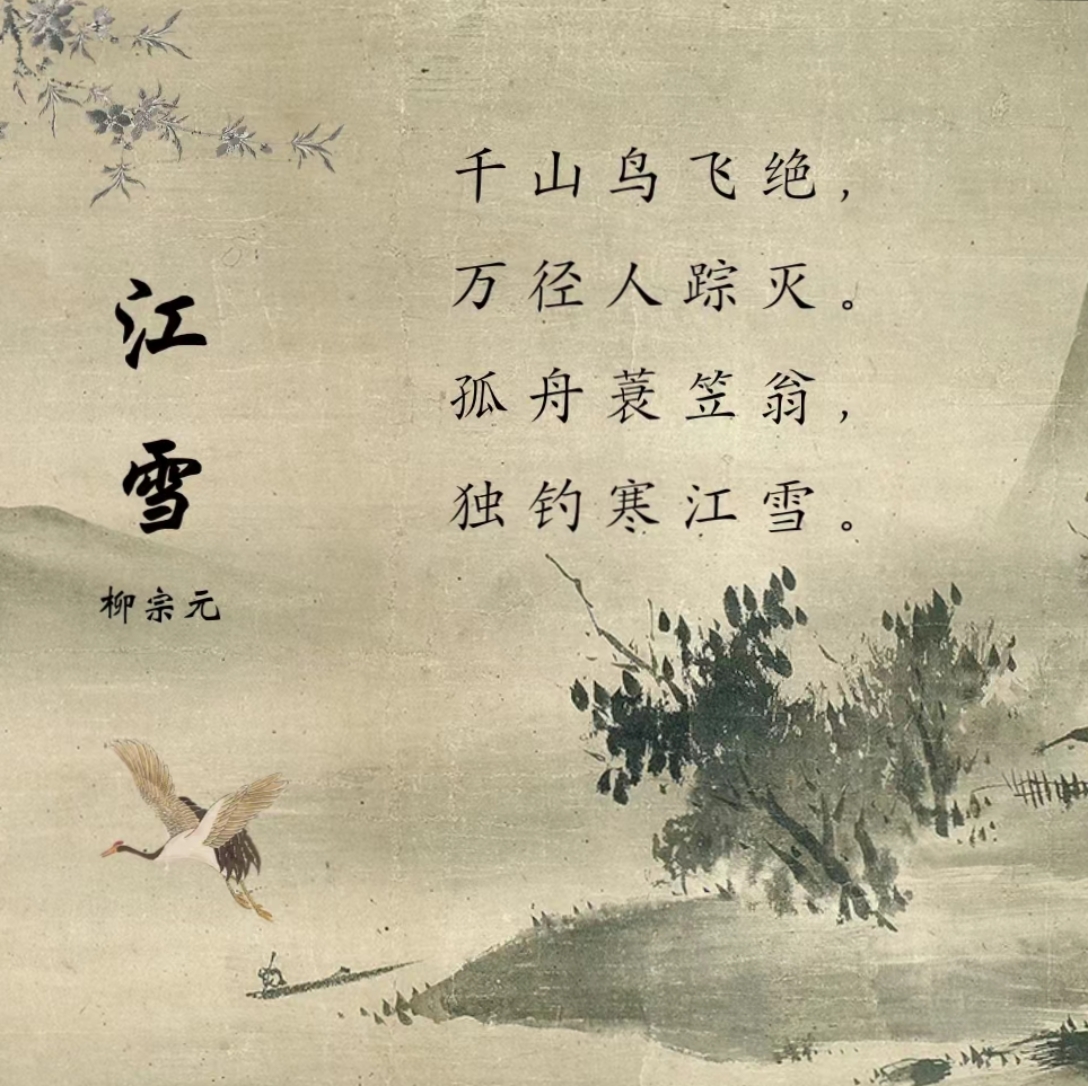 江雪
柳宗元
千山鸟飞绝，
万径人踪灭。
孤舟蓑笠翁，
独钓寒江雪。